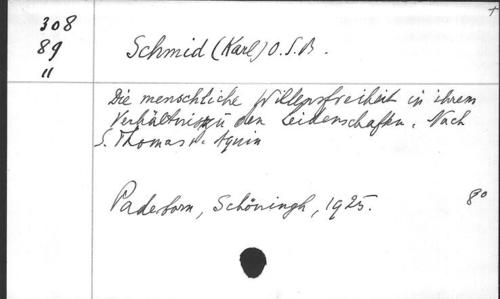 308
89
"
Schmid (Karl) O.S.B.
Die menschliche Willensfreiheit in ihrem
Verhältnis zu den Leidenschaften. Nach
S. Thomas v. Aquin
Paderborn, Schöningh, 1925.
8°